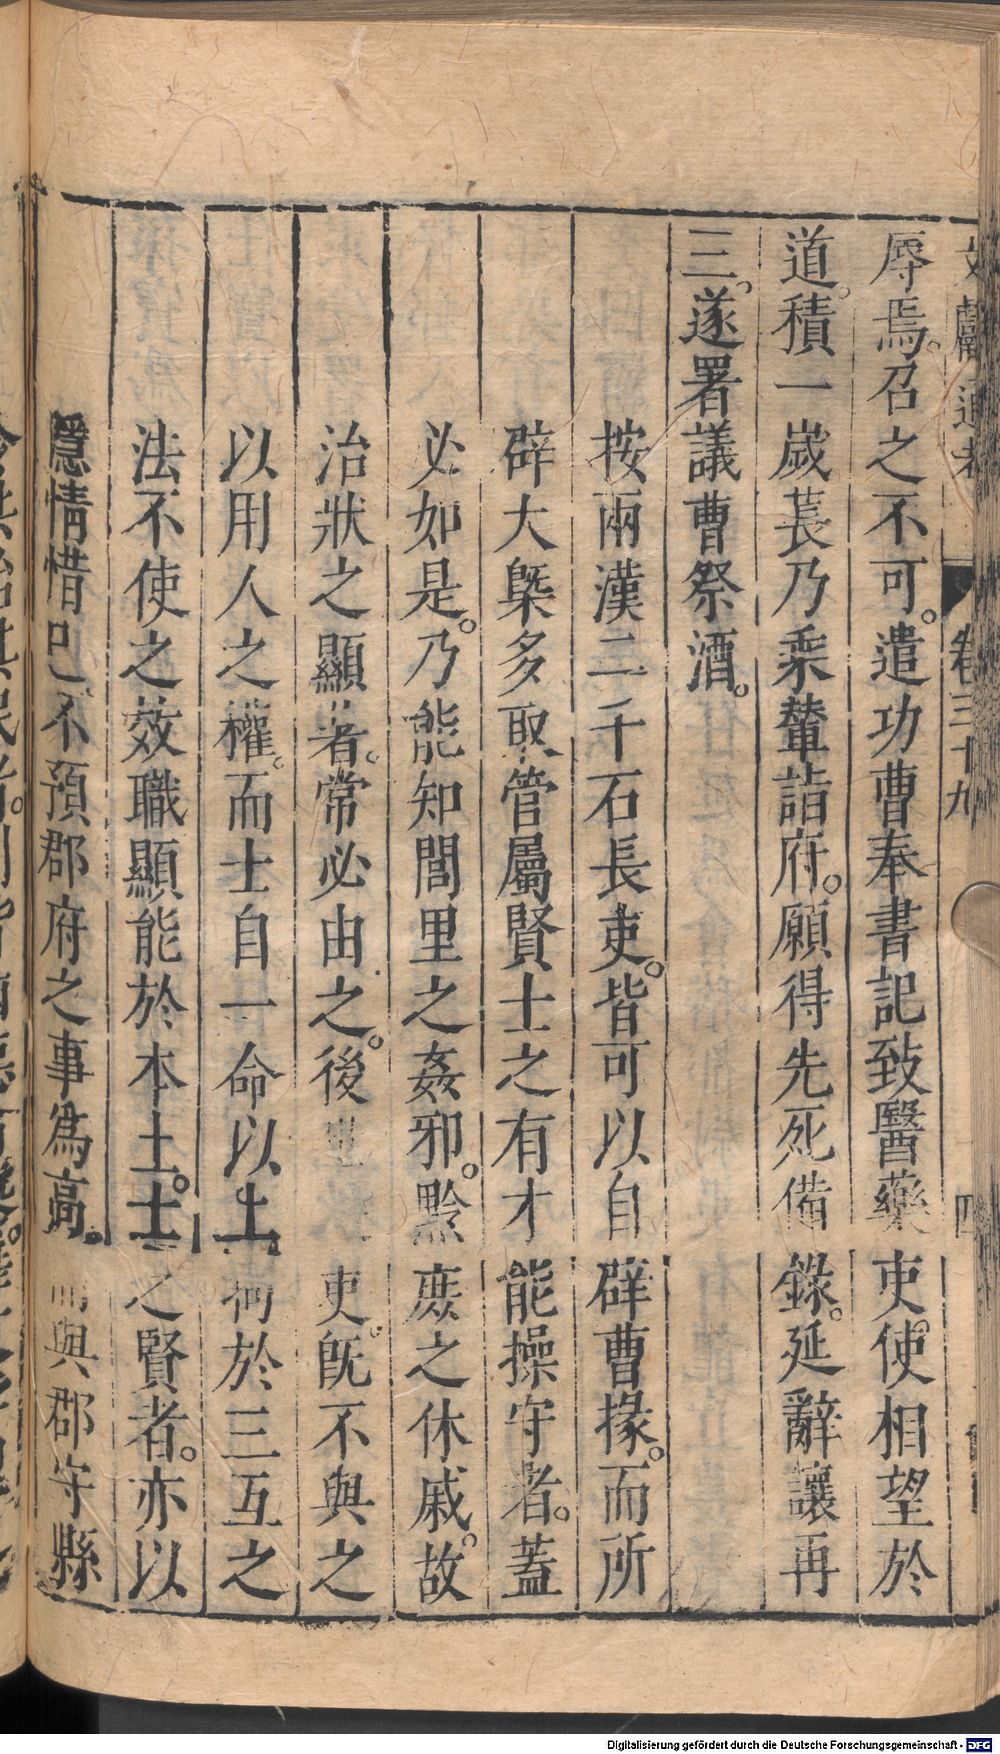 文獻通考 卷三十九 四
辱焉。召之不可。遣功曹奉書記致醫藥吏使相望於
道。積一歲萇乃乘輦詣府。願得先死備錄。延辭讓再
三。遂署議曹祭酒。
按兩漢二千石長吏。皆可以自辟曹掾。而所
辟大槩多取管屬賢士之有才能操守者。蓋
必如是。乃能知閭里之姦邪。黔庶之休戚。故
治狀之顯著。常必由之。後 吏。旣不與之
以用人之權。而士自一命以上 於三互之
法不使之效職顯能於本土。士之賢者。亦以
隱情惜己。不預郡府之事爲高。 與郡守縣
Digitalisierung gefördert durch die Deutsche Forschungsgemeinschaft - DFG